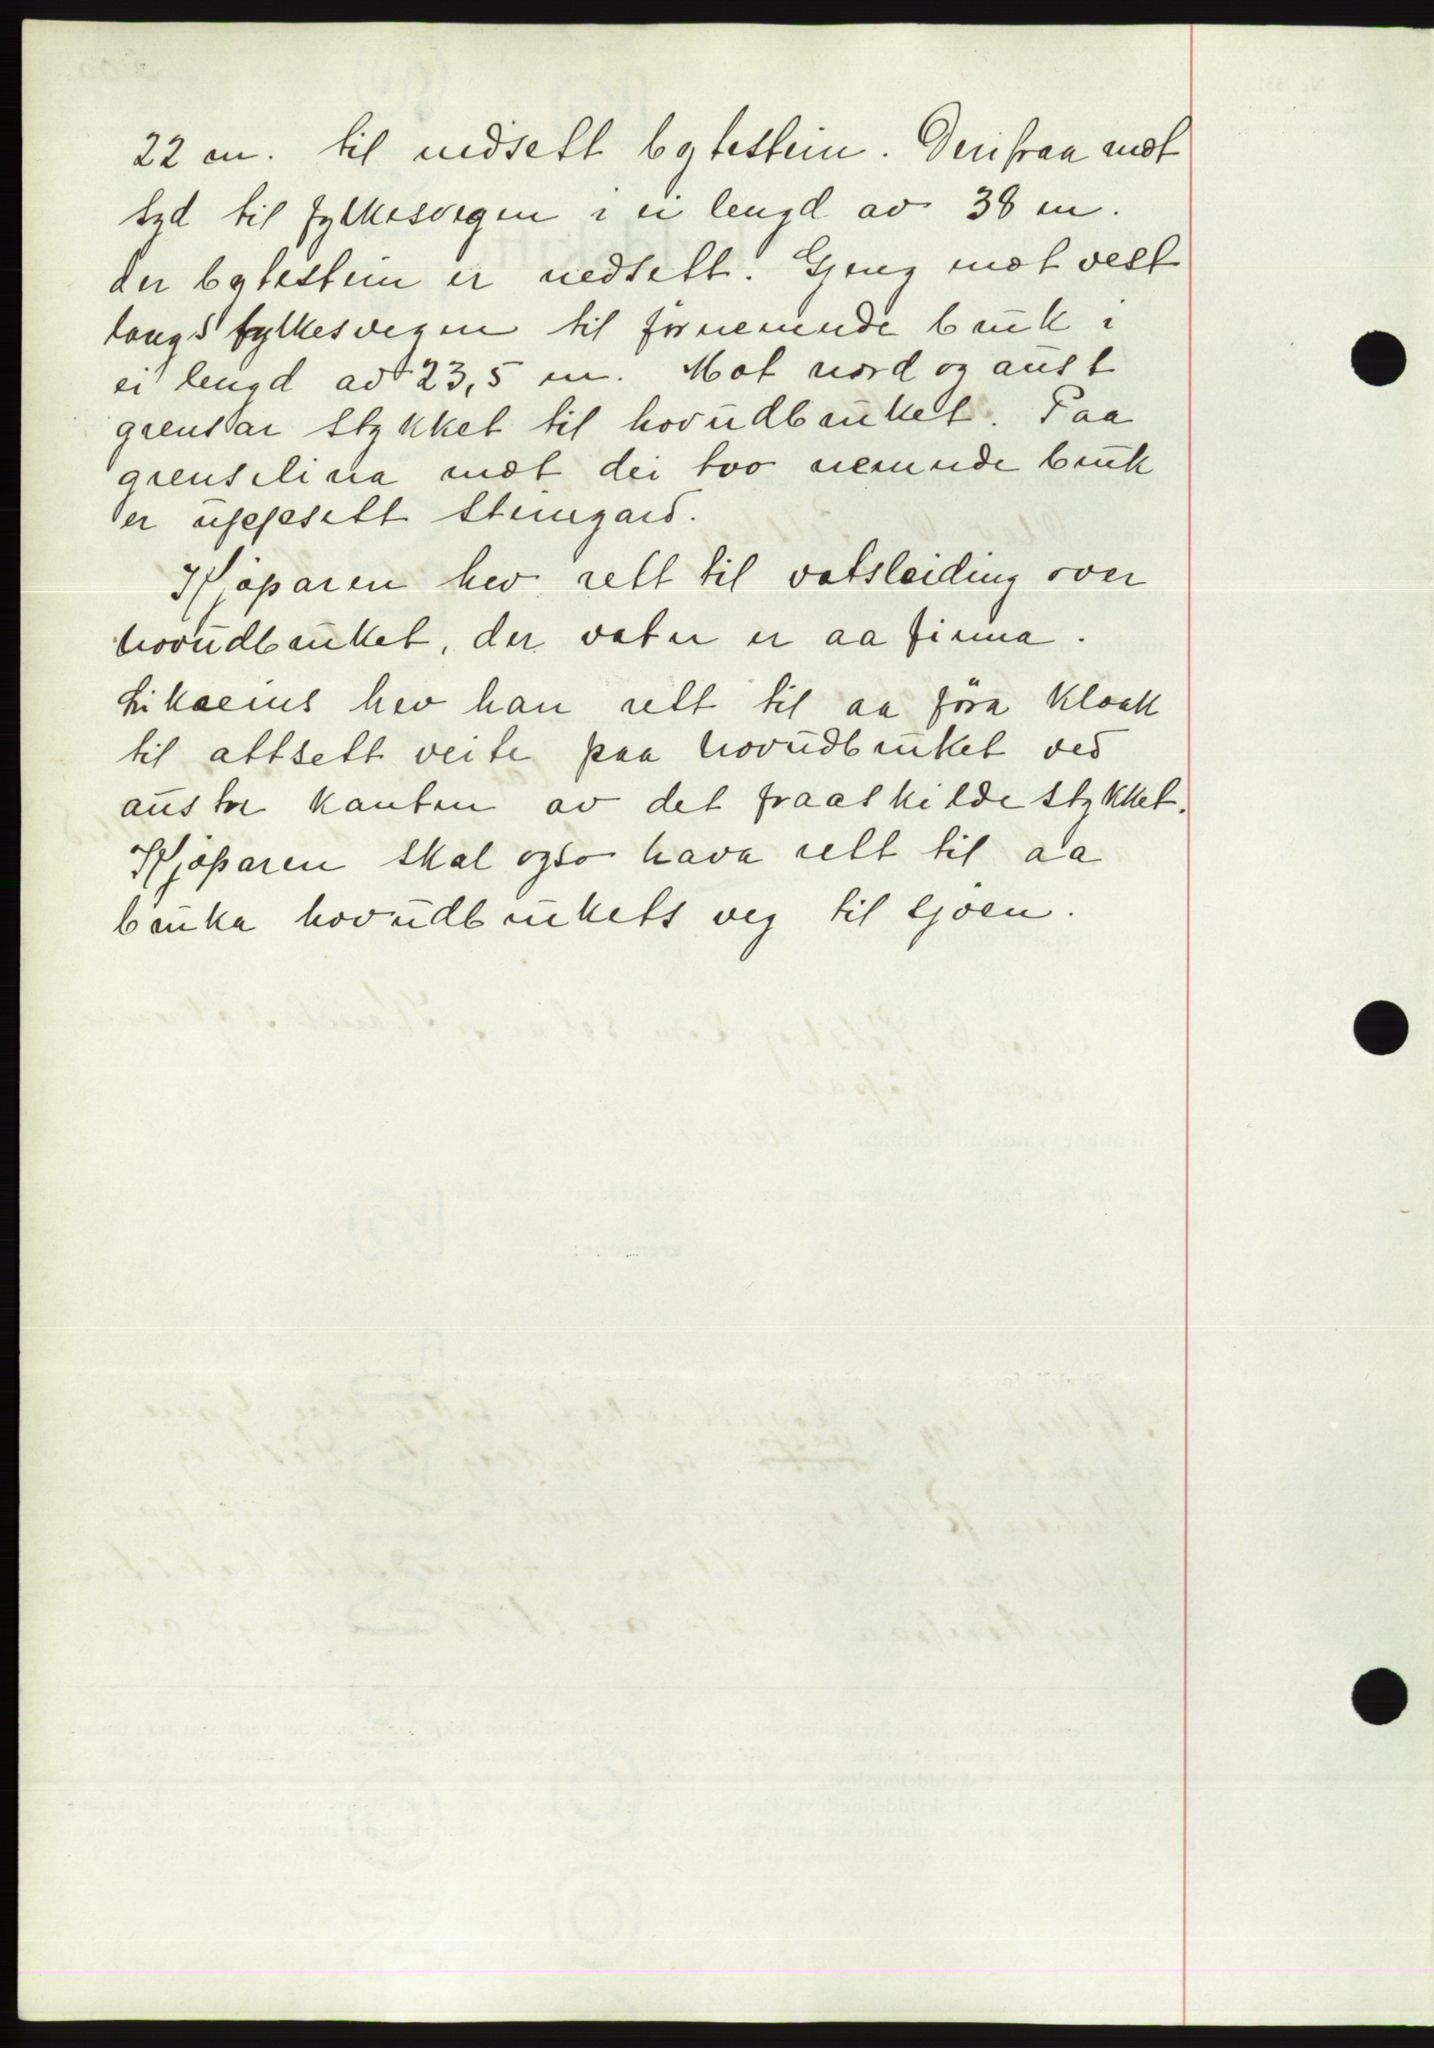 22 m. til nedsett bytestein. Derifraa mot
syd til fylkesvegen i ei lengd av 38 m.
der bytestein er nedsett. Gjeng mot vest
langs fylkesvegen til förnemnde bruk i
ei lengd av 23,5 m. Mot nord og aust
grensar stykket til hovudbruket. Paa
grenselina mot dei tvo nemnde bruk
er uppsett steingard.
Kjöparen hev rett til vatsleiding over
hovudbruket, der vatn er aa finna.
Likaeins hev han rett til aa föra kloakk
til attsett veite paa hovudbruket ved
austre kanten av det fraaskilde stykket.
Kjöparen skal ogso hava rett til aa
bruka hovudbrukets veg til sjöen.